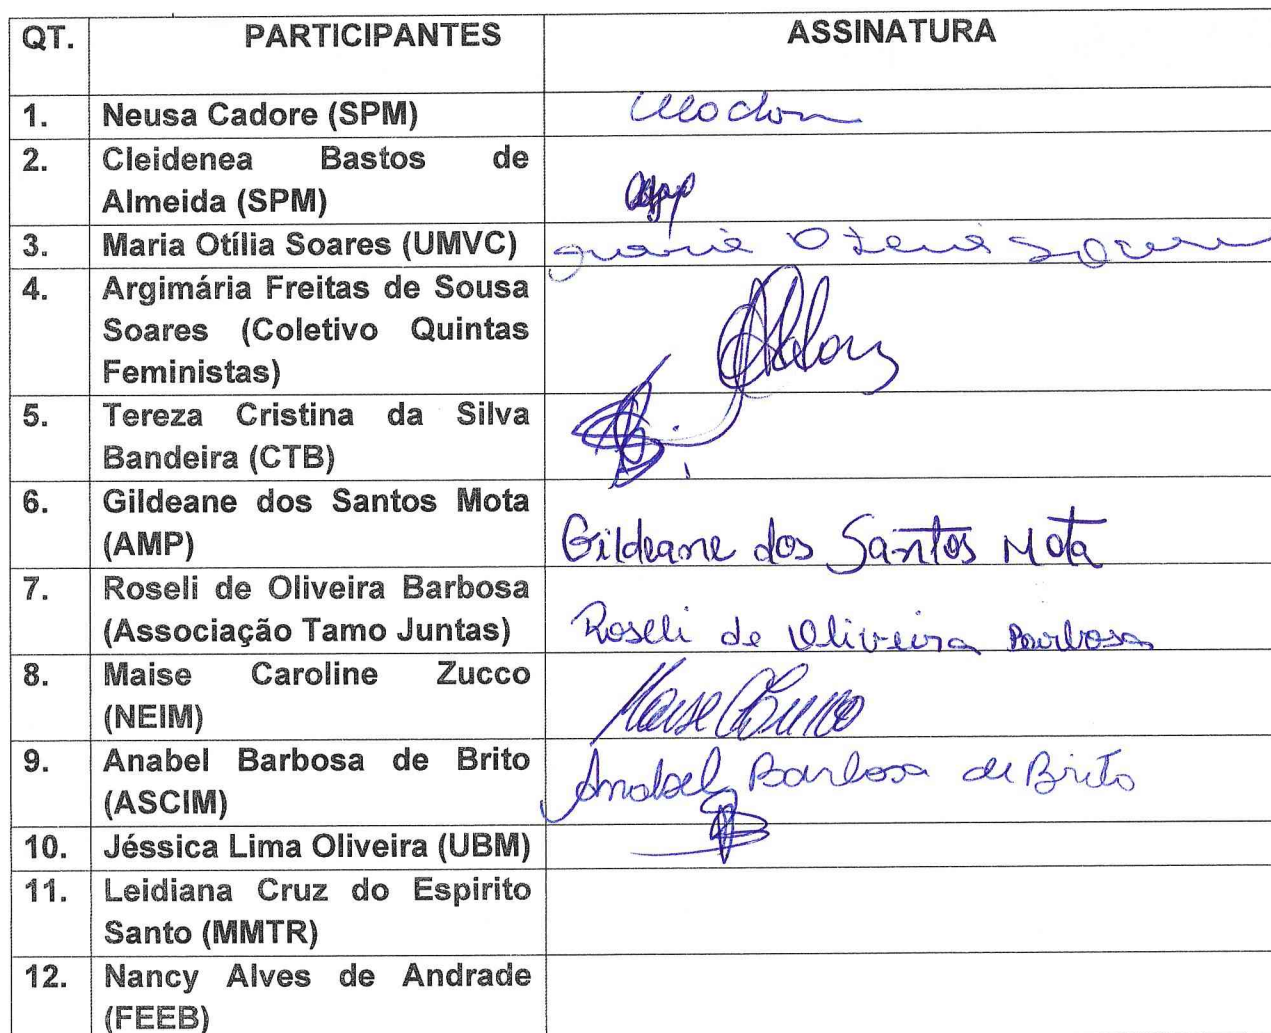 QT. PARTICIPANTES ASSINATURA
1. Neusa Cadore (SPM)
2. Cleidenea Bastos de
Almeida (SPM)
3. Maria Otília Soares (UMVC) Maria Otilia Soares
4. Argimária Freitas de Sousa
Soares (Coletivo Quintas
Feministas)
5. Tereza Cristina da Silva
Bandeira (CTB)
6. Gildeane dos Santos Mota
(AMP) Gildeane dos Santos Mota
7. Roseli de Oliveira Barbosa
(Associação Tamo Juntas) Roseli de Oliveira Barbosa
8. Maise Caroline Zucco
(NEIM) Maise C Zucco
9. Anabel Barbosa de Brito
(ASCIM) Anabel Barbosa de Brito
10. Jéssica Lima Oliveira (UBM)
11. Leidiana Cruz do Espirito
Santo (MMTR)
12. Nancy Alves de Andrade
(FEEB)